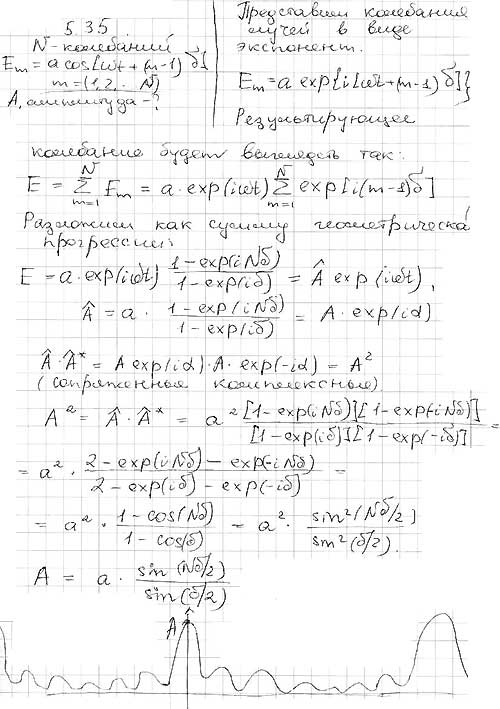 5.35.
N-колебаний
E_m = a cos[ωt+(m-1)δ]
m=(1,2... N)
A, амплитуда -?
Представим колебания
лучей в виде
экспонент.
E_m = a exp{i[ωt+(m-1)δ]}
Результирующее
колебание будет выглядеть так:
E = \sum_{m=1}^{N} E_m = a·exp(iωt) \sum_{m=1}^{N} exp[i(m-1)δ]
Разложим как сумму геометрическ
прогрессии:
E = a·exp(iωt) \frac{1-exp(iNδ)}{1-exp(iδ)} = Â exp(iωt),
Â = a· \frac{1-exp(iNδ)}{1-exp(iδ)} = A·exp(iα)
Â·Â* = A exp(iα)·A·exp(-iα) = A²
(сопряженные комплексные)
A² = Â·Â* = a² \frac{[1-exp(iNδ)][1-exp(-iNδ)]}{[1-exp(iδ)][1-exp(-iδ)]} =
= a² · \frac{2-exp(iNδ)-exp(-iNδ)}{2-exp(iδ)-exp(-iδ)} =
= a² · \frac{1-cos(Nδ)}{1-cos(δ)} = a² · \frac{sin²(Nδ/2)}{sin²(δ/2)}.
A = a · \frac{sin(Nδ/2)}{sin(δ/2)}
Â